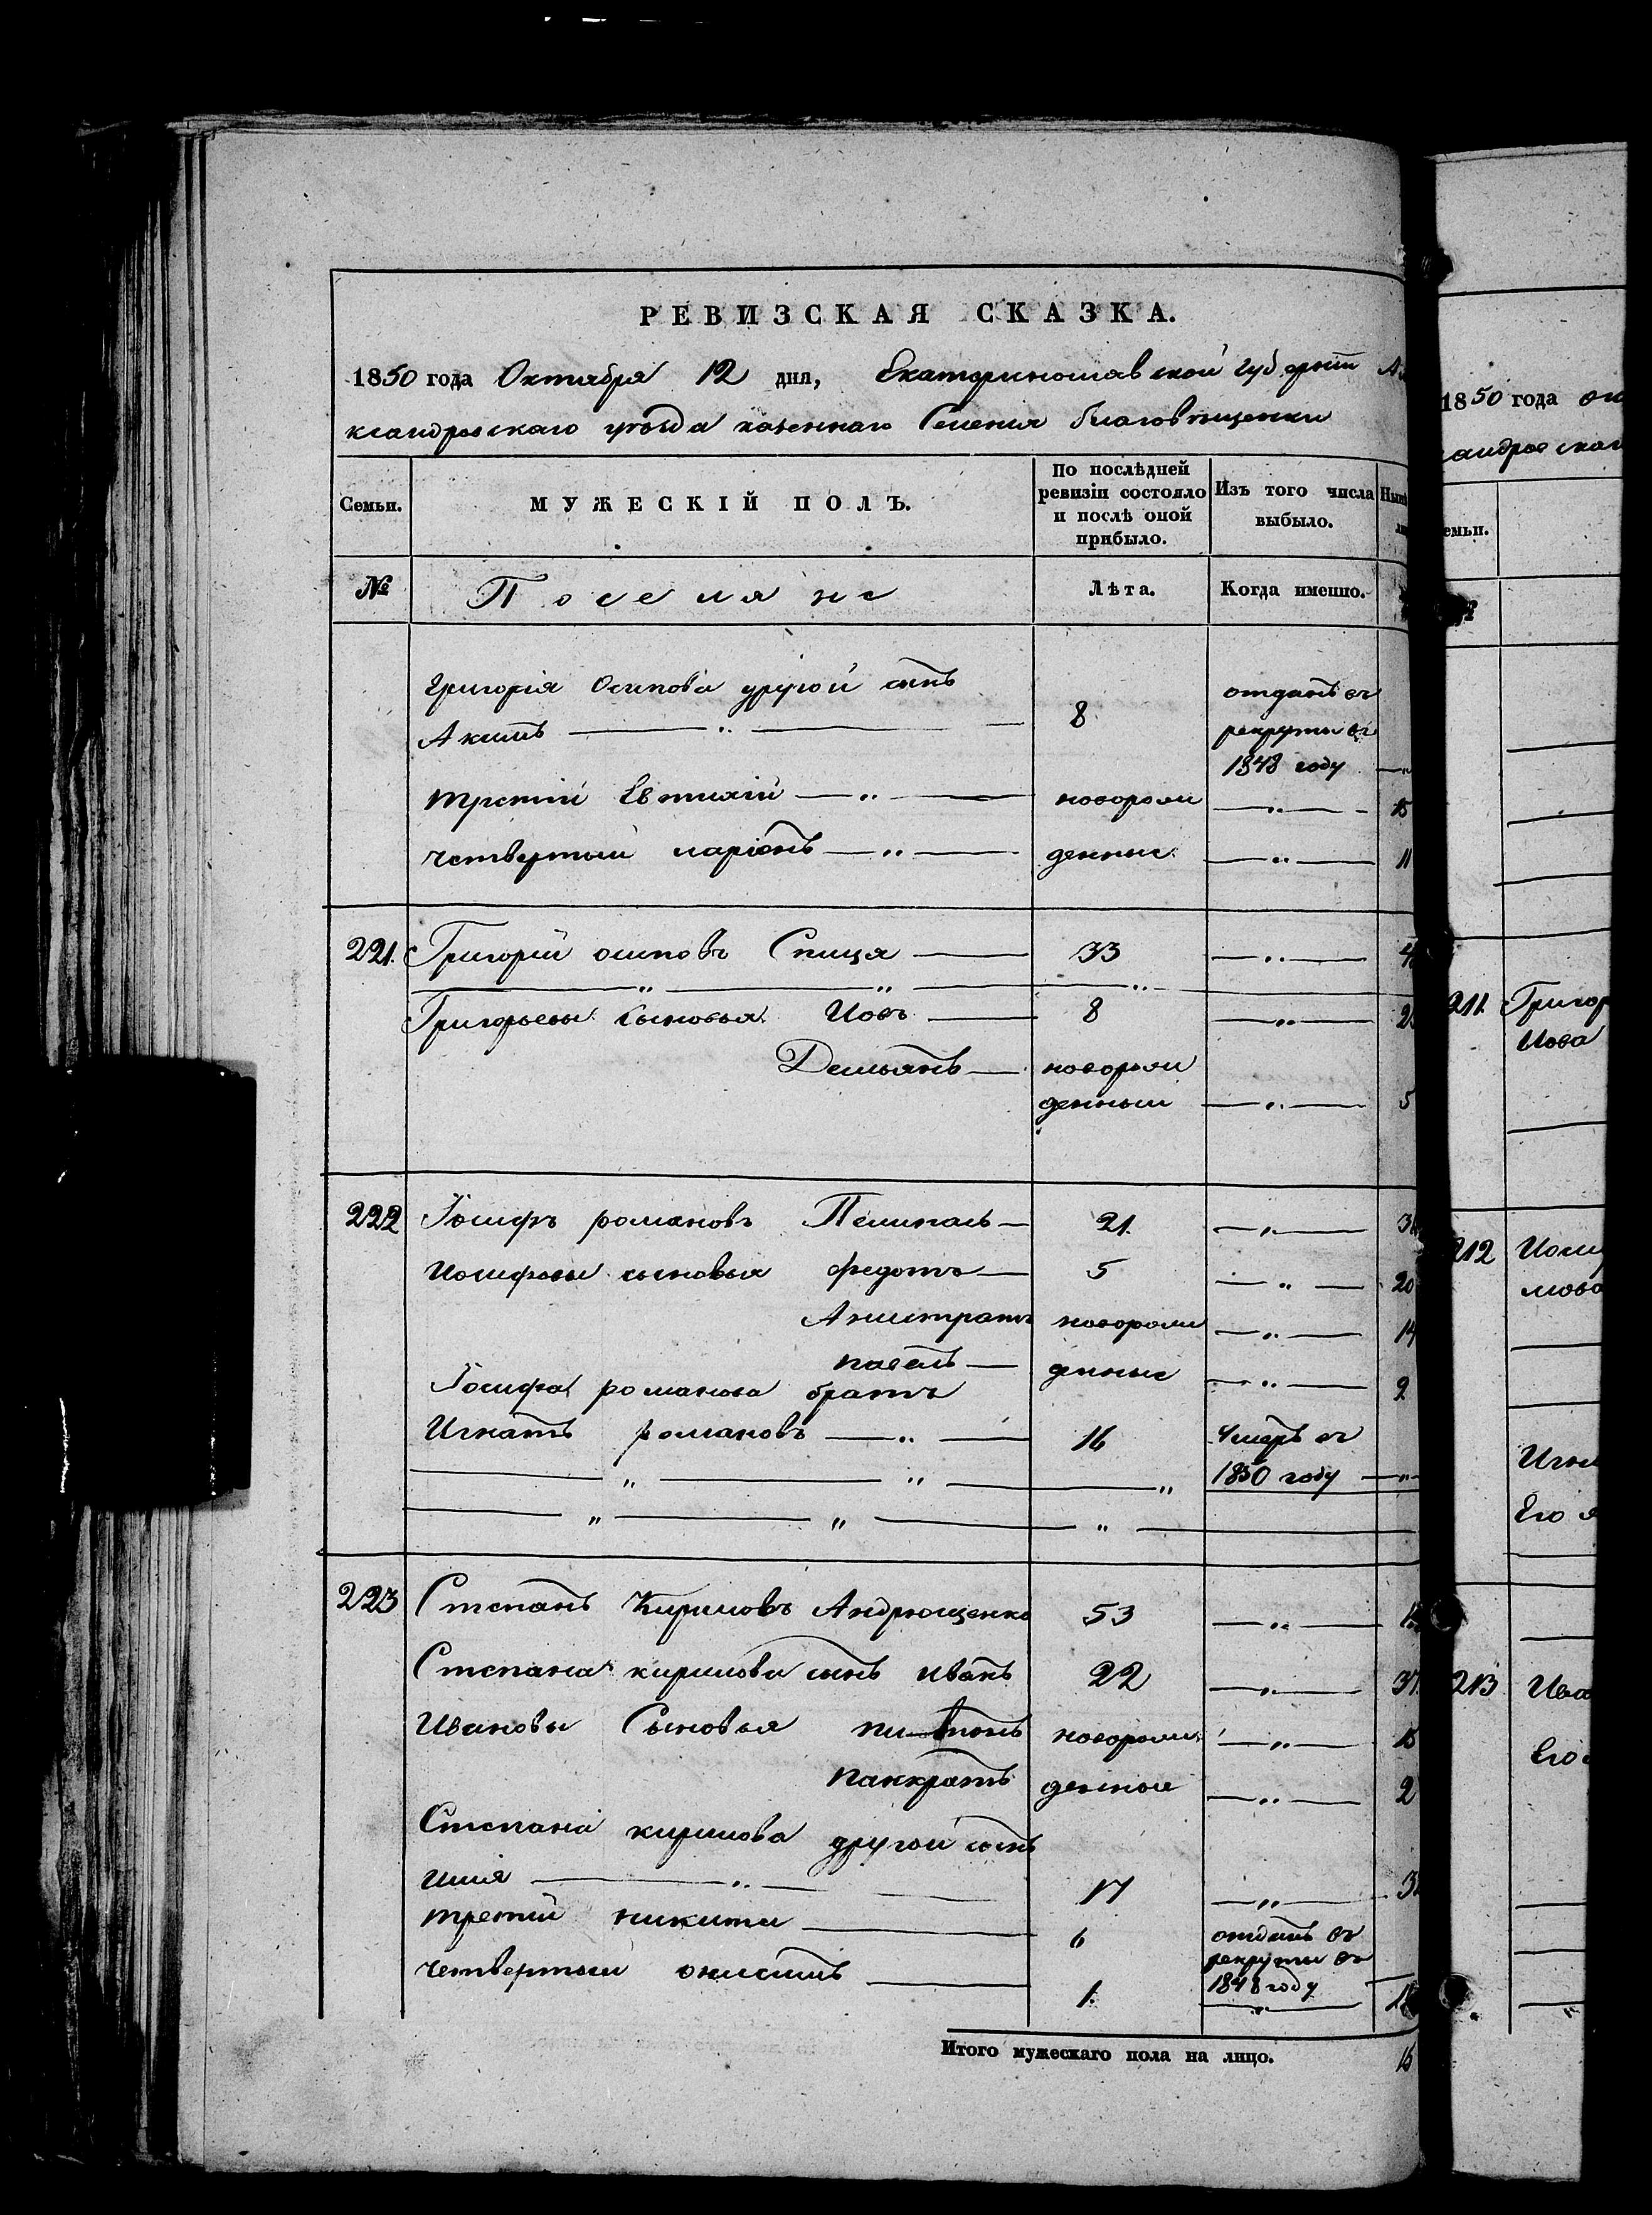 РЕВИЗСКАЯ СКАЗКА.
1850 года Октября 12 дня, Екатеринославской губерніи А
ександровскаго уѣзда казеннаго Селенія благовѣщенки
Семьи. МУЖЕСКІЙ ПОЛЪ. По послѣдней ревизіи состояло и послѣ оной прибыло. Изъ того числа выбыло.
№ Поселяне Лѣта. Когда именно.
Григорія Осипова другой сынъ отданъ въ
Акимъ — „ — 8 рекруты въ
1848 году — „
третій Евтихій — „ — новорож — „ — 15
четвертый ларіонъ — „ — денные — „ — 11
221. Григорій осиповъ Спиця — 33 — „ — 4
— „ — „ — „
Григорьевы сыновья Иовъ — 8 — „ — 2
Демьянъ — новорож
денный — „ — 5
222 Іосифъ романовъ — 21. — „ — 3
Иосифовы сыновья федотъ — 5 — „ — 20
Анистратъ новорож — „ — 14
павелъ — денные — „ — 2
Іосифа романова братъ
Игнатъ романовъ — „ — 16 Умеръ въ
— „ — „ — „ 1850 году — „
— „ — „ — „ —
223 Степанъ Кириловъ Андрющенко 53 — „ —
Степана кирилова сынъ иванъ 22 — „ — 37.
Ивановы Сыновья новорож — „ — 15
панкратъ денные — „ — 2
Степана кирилова другой сынъ
илія — „ — 17 — „ — 3
третій никита — 6 отданъ въ
рекруты въ
четвертый — 1. 1848 году
— „ —
Итого мужескаго пола на лицо. 15
1850 года ок
андровскаг
емьи.
211. Григор
Иова
212 Иоси
Игна
Его
213 Ива
Его